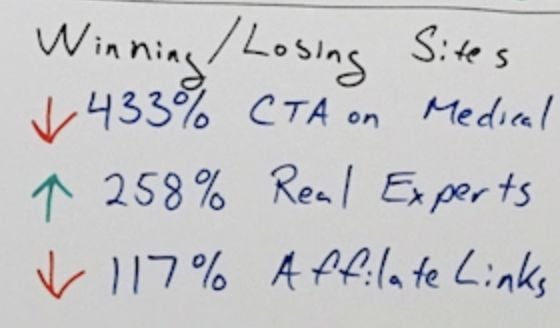 Winning/Losing Sites
↓ 433% CTA on Medical
↑ 258% Real Experts
↓ 117% Affilate Links